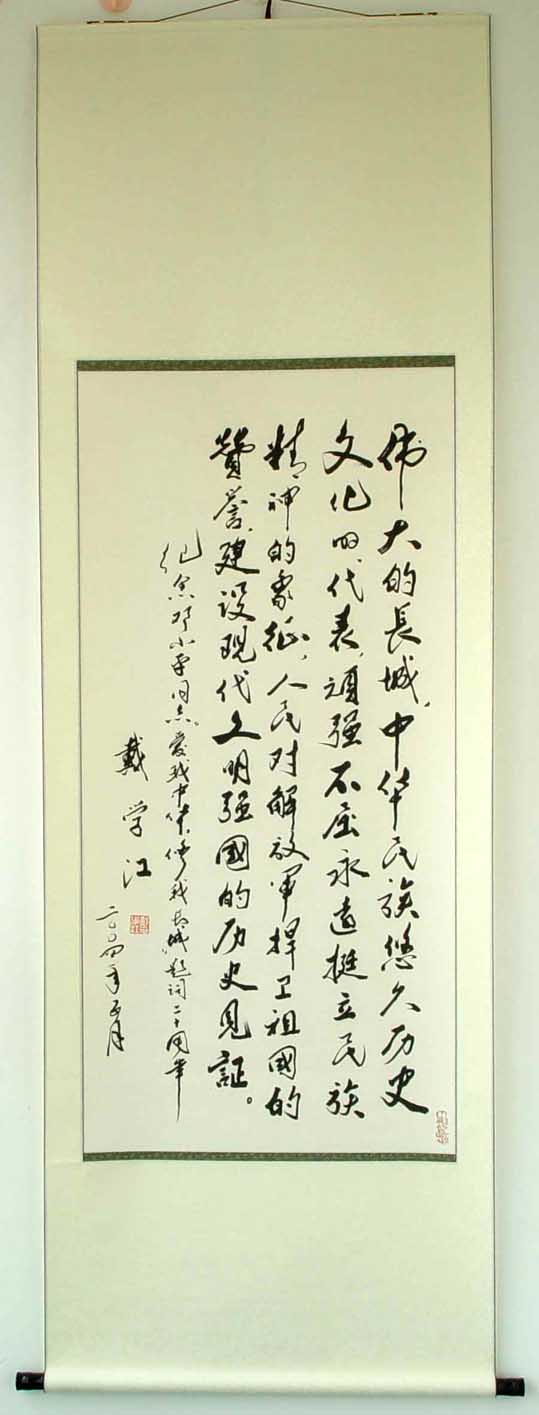 伟大的長城，中华民族悠久历史
文化的代表，頑强不屈永远挺立民族
精神的象征，人民对解放軍捍卫祖國的
贊誉，建设现代文明强國的历史見証。
纪念邓小平同志爱我中华修我长城题词二十周年
戴学江
二〇〇四年五月